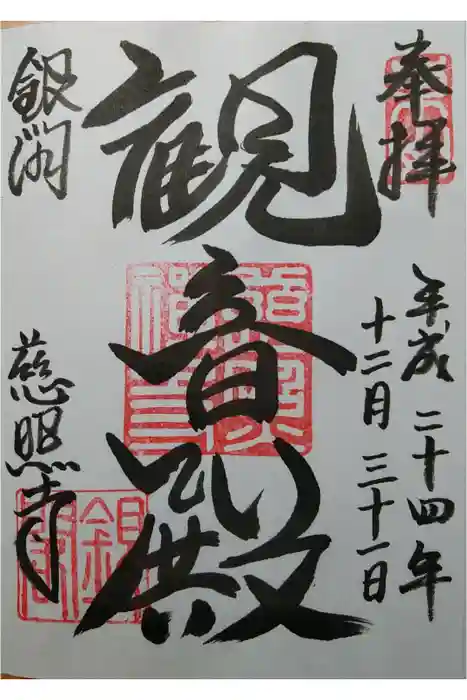 奉拝
年成 二十四年
十二月 三十一日
観音殿
銀閣
慈照寺